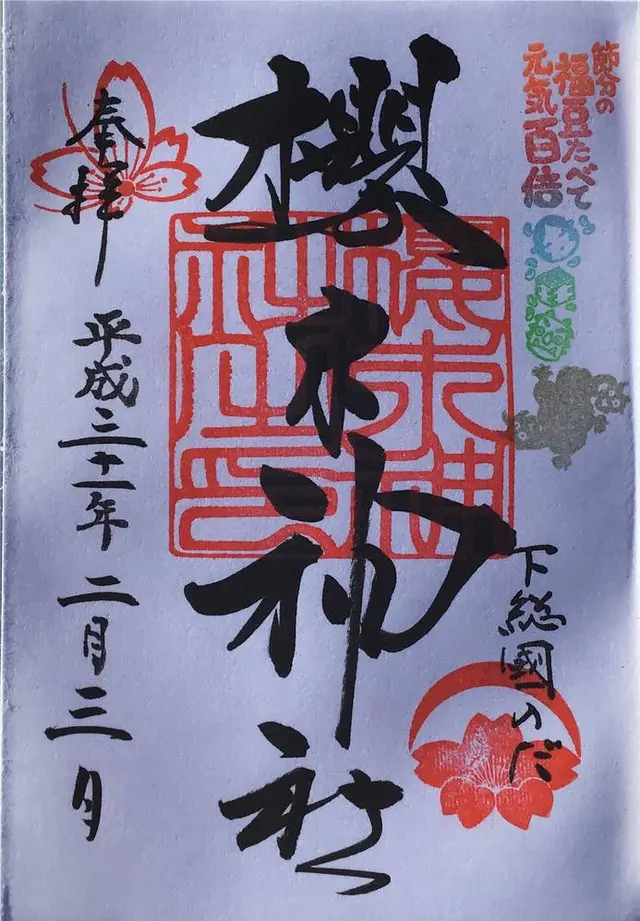 節分の
福豆たべて
元気百倍
下総國のだ
櫻木神社
櫻木神
社之印
奉拝
平成三十一年二月三日